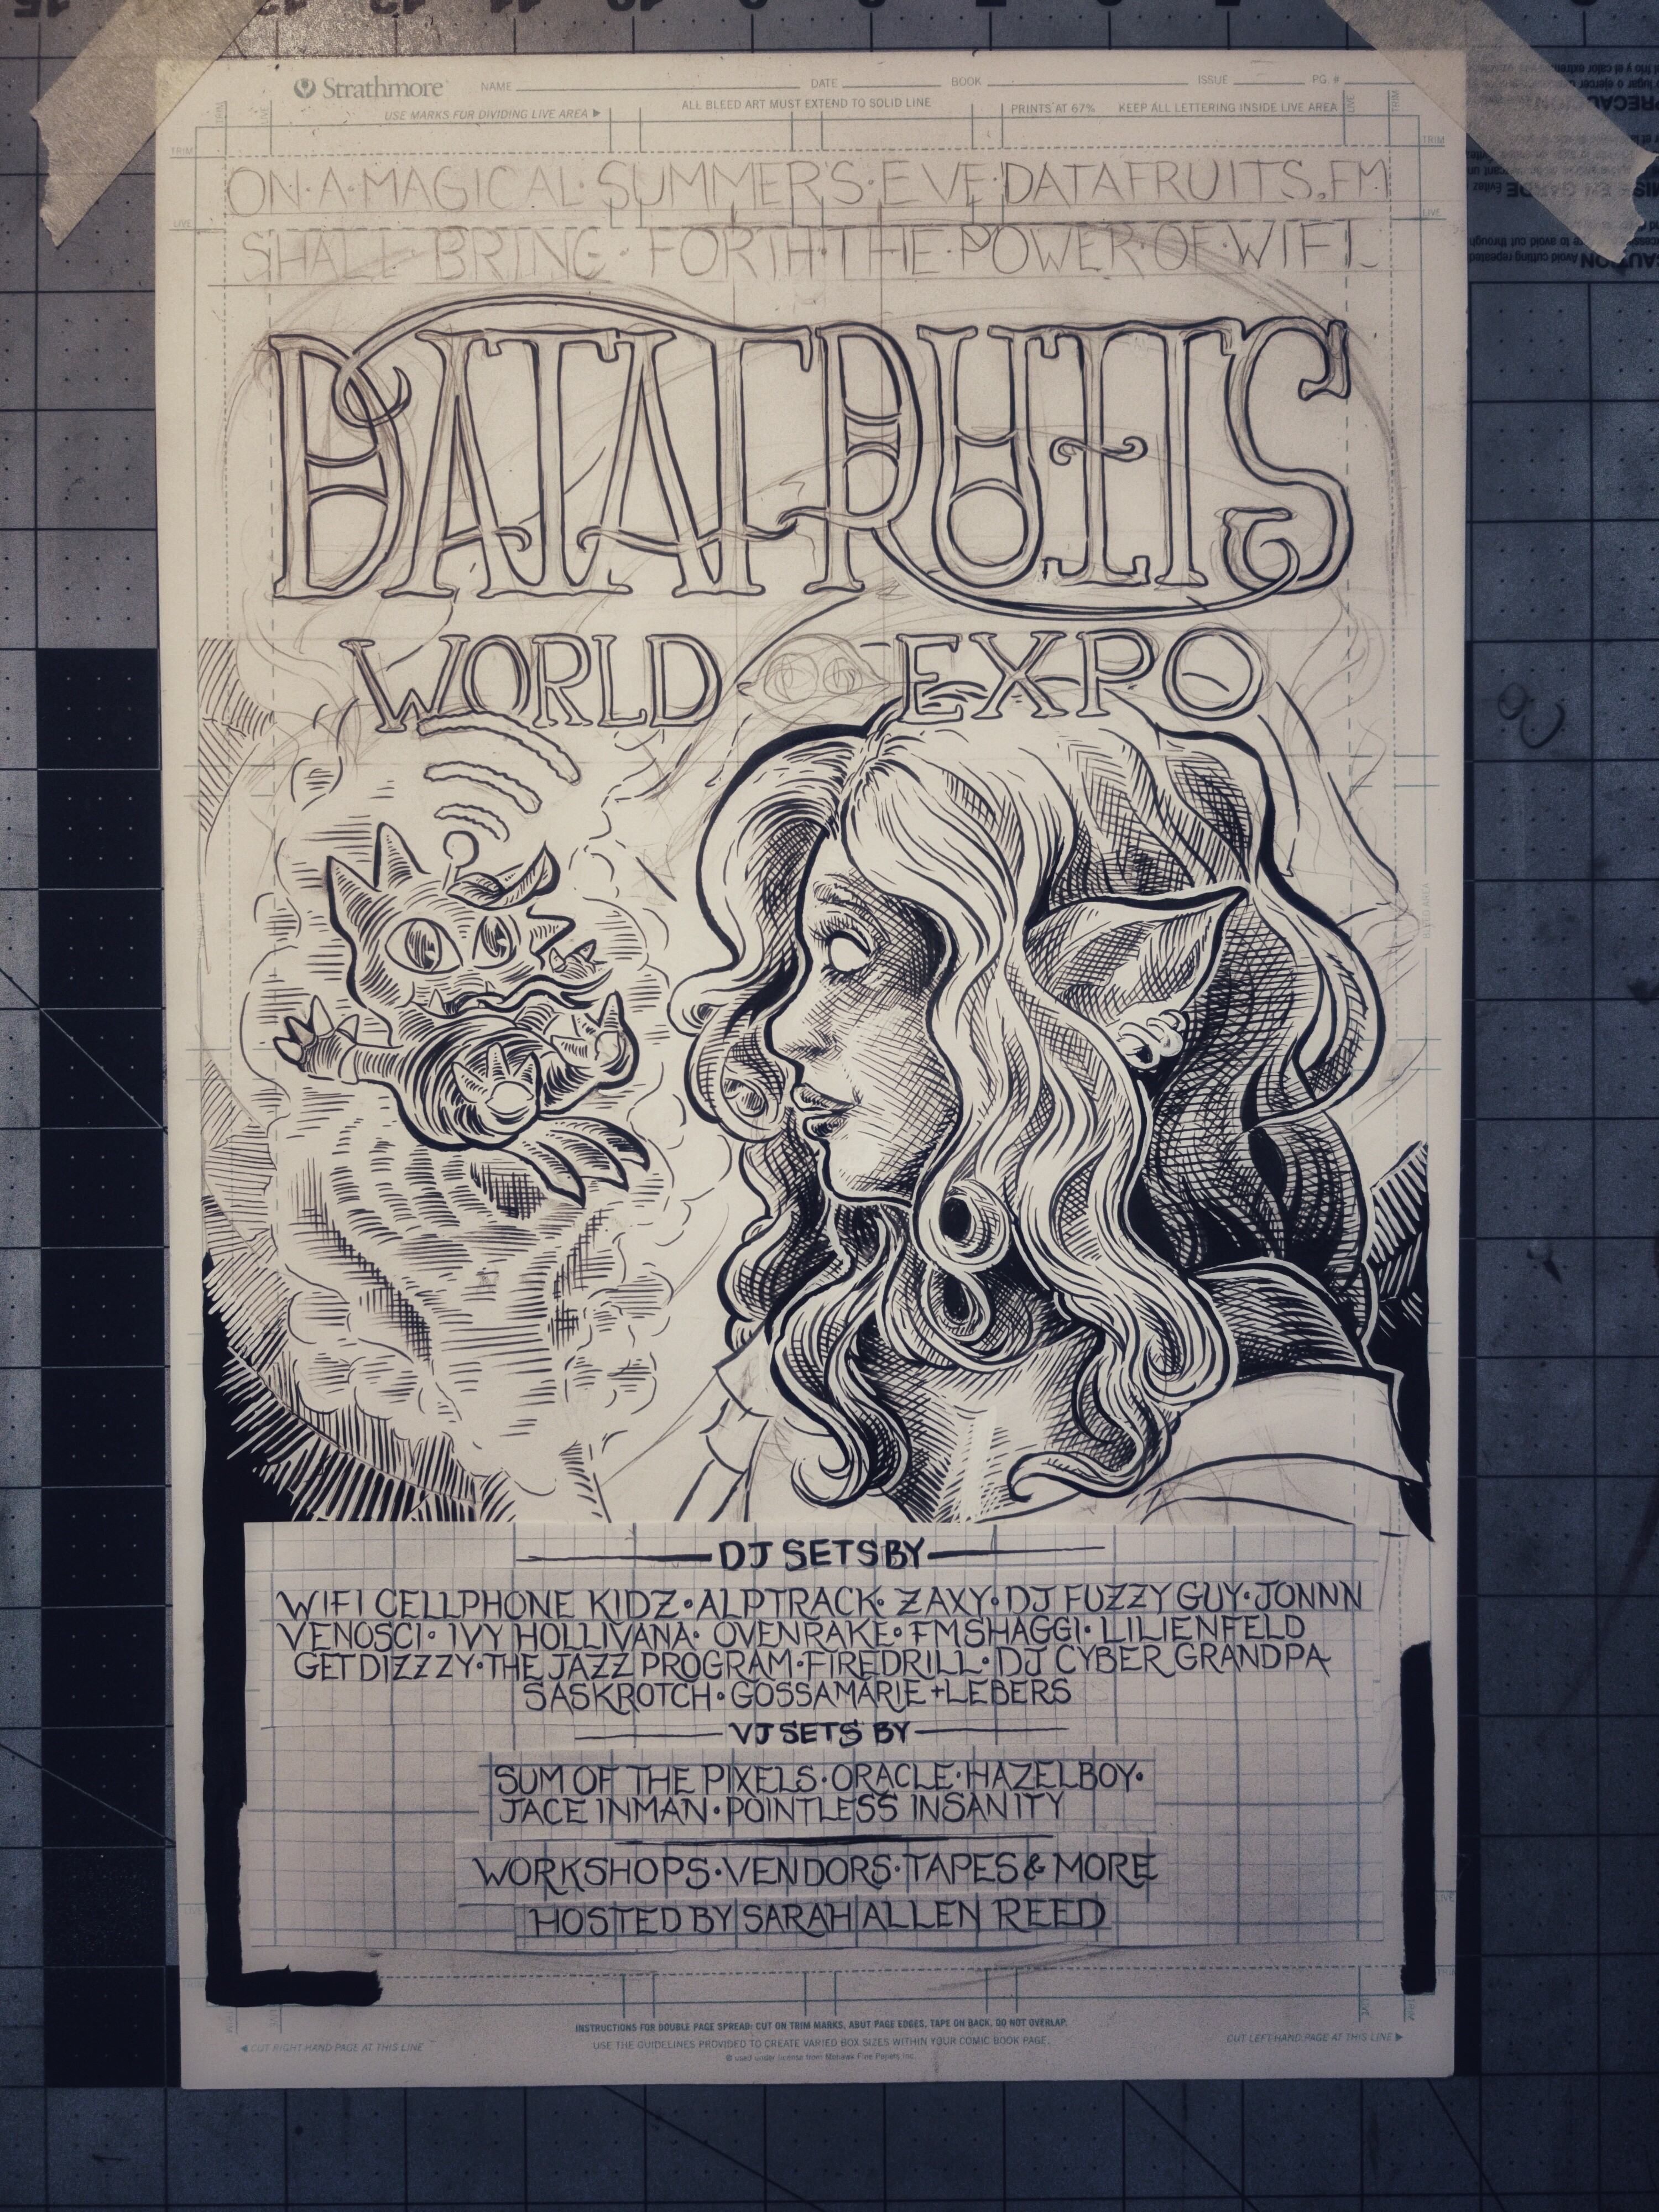 Strathmore NAME DATE BOOK ISSUE PG. #
USE MARKS FOR DIVIDING LIVE AREA ▶
ALL BLEED ART MUST EXTEND TO SOLID LINE
PRINTS AT 67% KEEP ALL LETTERING INSIDE LIVE AREA
TRIM
LIVE
TRIM
LIVE
ON·A·MAGICAL·SUMMER'S·EVE·DATAFRUITS.FM
SHALL BRING·FORTH·THE·POWER·OF·WIFI
DATAFRUITS
WORLD EXPO
DJ SETS BY
WIFI CELLPHONE KIDZ•ALPTRACK•ZAXY•DJ FUZZY GUY•JONNN
VENOSCI•IVY HOLLIVANA•OVENRAKE•FMSHAGGI•LILIENFELD
GETDIZZZY•THE JAZZ PROGRAM•FIREDRILL•DJ CYBER GRANDPA
SASKROTCH•GOSSAMARIE+LEBERS
VJ SETS BY
SUM OF THE PIXELS•ORACLE•HAZELBOY•
JACE INMAN•POINTLESS INSANITY
WORKSHOPS•VENDORS•TAPES & MORE
HOSTED BY SARAH ALLEN REED
INSTRUCTIONS FOR DOUBLE PAGE SPREAD: CUT ON TRIM MARKS, ABUT PAGE EDGES, TAPE ON BACK, DO NOT OVERLAP.
USE THE GUIDELINES PROVIDED TO CREATE VARIED BOX SIZES WITHIN YOUR COMIC BOOK PAGE.
® used under license from Mohawk Fine Papers Inc.
◀ CUT RIGHT-HAND PAGE AT THIS LINE
CUT LEFT-HAND PAGE AT THIS LINE ▶